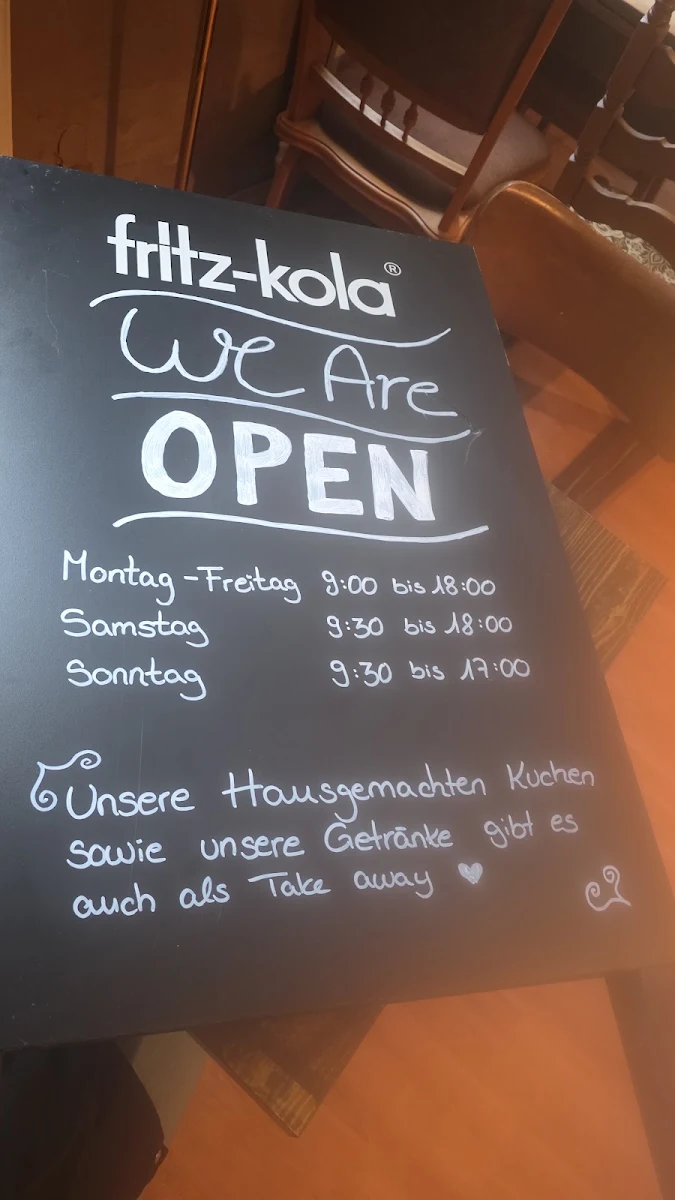 fritz-kola®
We Are
OPEN
Montag-Freitag 9:00 bis 18:00
Samstag 9:30 bis 18:00
Sonntag 9:30 bis 17:00
Unsere Hausgemachten Kuchen
sowie unsere Getränke gibt es
auch als Take away ♥